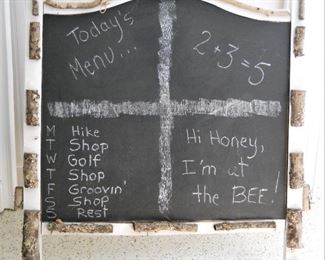 Today's
Menu...
2+3=5
M Hike
T Shop
W Golf
T Shop
F Groovin'
S Shop
S Rest
Hi Honey,
I'm at
the BEE!